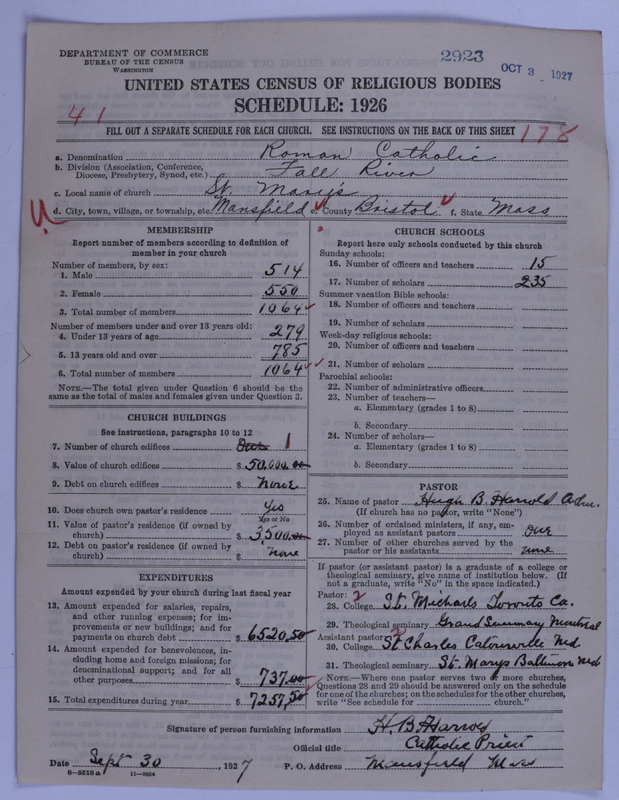 DEPARTMENT OF COMMERCE
BUREAU OF THE CENSUS
WASHINGTON
2923
OCT 3 1927
UNITED STATES CENSUS OF RELIGIOUS BODIES
SCHEDULE: 1926
41
FILL OUT A SEPARATE SCHEDULE FOR EACH CHURCH. SEE INSTRUCTIONS ON THE BACK OF THIS SHEET
178
a. Denomination Roman Catholic
b. Division (Association, Conference, Diocese, Presbytery, Synod, etc.) Fall River
c. Local name of church St. Mary's
d. City, town, village, or township, etc. Mansfield e. County Bristol f. State Mass
MEMBERSHIP
Report number of members according to definition of
member in your church
Number of members, by sex:
1. Male 514
2. Female 550
3. Total number of members 1064
Number of members under and over 13 years old:
4. Under 13 years of age 279
5. 13 years old and over 785
6. Total number of members 1064
NOTE.—The total given under Question 6 should be
same as the total of males and females given under Question 3.
CHURCH BUILDINGS
See instructions, paragraphs 10 to 12
7. Number of church edifices 1
8. Value of church edifices $ 50,000.00
9. Debt on church edifices $ none
10. Does church own pastor's residence Yes
Yes or No
11. Value of pastor's residence (if owned by
church) $ 3500.00
12. Debt on pastor's residence (if owned by
church) $ none
EXPENDITURES
Amount expended by your church during last fiscal year
13. Amount expended for salaries, repairs,
and other running expenses; for im-
provements or new buildings; and for
payments on church debt $ 6520,50
14. Amount expended for benevolences, in-
cluding home and foreign missions; for
denominational support; and for all
other purposes $ 737.00
15. Total expenditures during year $ 7257,50
CHURCH SCHOOLS
Report here only schools conducted by this church
Sunday schools:
16. Number of officers and teachers 15
17. Number of scholars 235
Summer vacation Bible schools:
18. Number of officers and teachers
19. Number of scholars
Week-day religious schools:
20. Number of officers and teachers
21. Number of scholars
Parochial schools:
22. Number of administrative officers
23. Number of teachers—
a. Elementary (grades 1 to 8)
b. Secondary
24. Number of scholars—
a. Elementary (grades 1 to 8)
b. Secondary
PASTOR
25. Name of pastor Hugh B. Harrold Adm.
(If church has no pastor, write "None")
26. Number of ordained ministers, if any, em-
ployed as assistant pastors One
27. Number of other churches served by the
pastor or his assistants none
If pastor (or assistant pastor) is a graduate of a college or
theological seminary, give name of institution below. (If
not a graduate, write "No" in the space indicated.)
Pastor: 2
28. College St. Michaels Toronto Ca.
29. Theological seminary Grand Seminary Montreal
Assistant pastor: 2
30. College St Charles Catonsville Md
31. Theological seminary St. Marys Baltimore Md
NOTE.—Where one pastor serves two or more churches,
Questions 28 and 29 should be answered only on the schedule
for one of the churches; on the schedules for the other churches,
write "See schedule for church."
Signature of person furnishing information H. B. Harrold
Official title Catholic Priest
Date Sept 30, 1927 P. O. Address Mansfield Mass
8—5518 a 11—9054